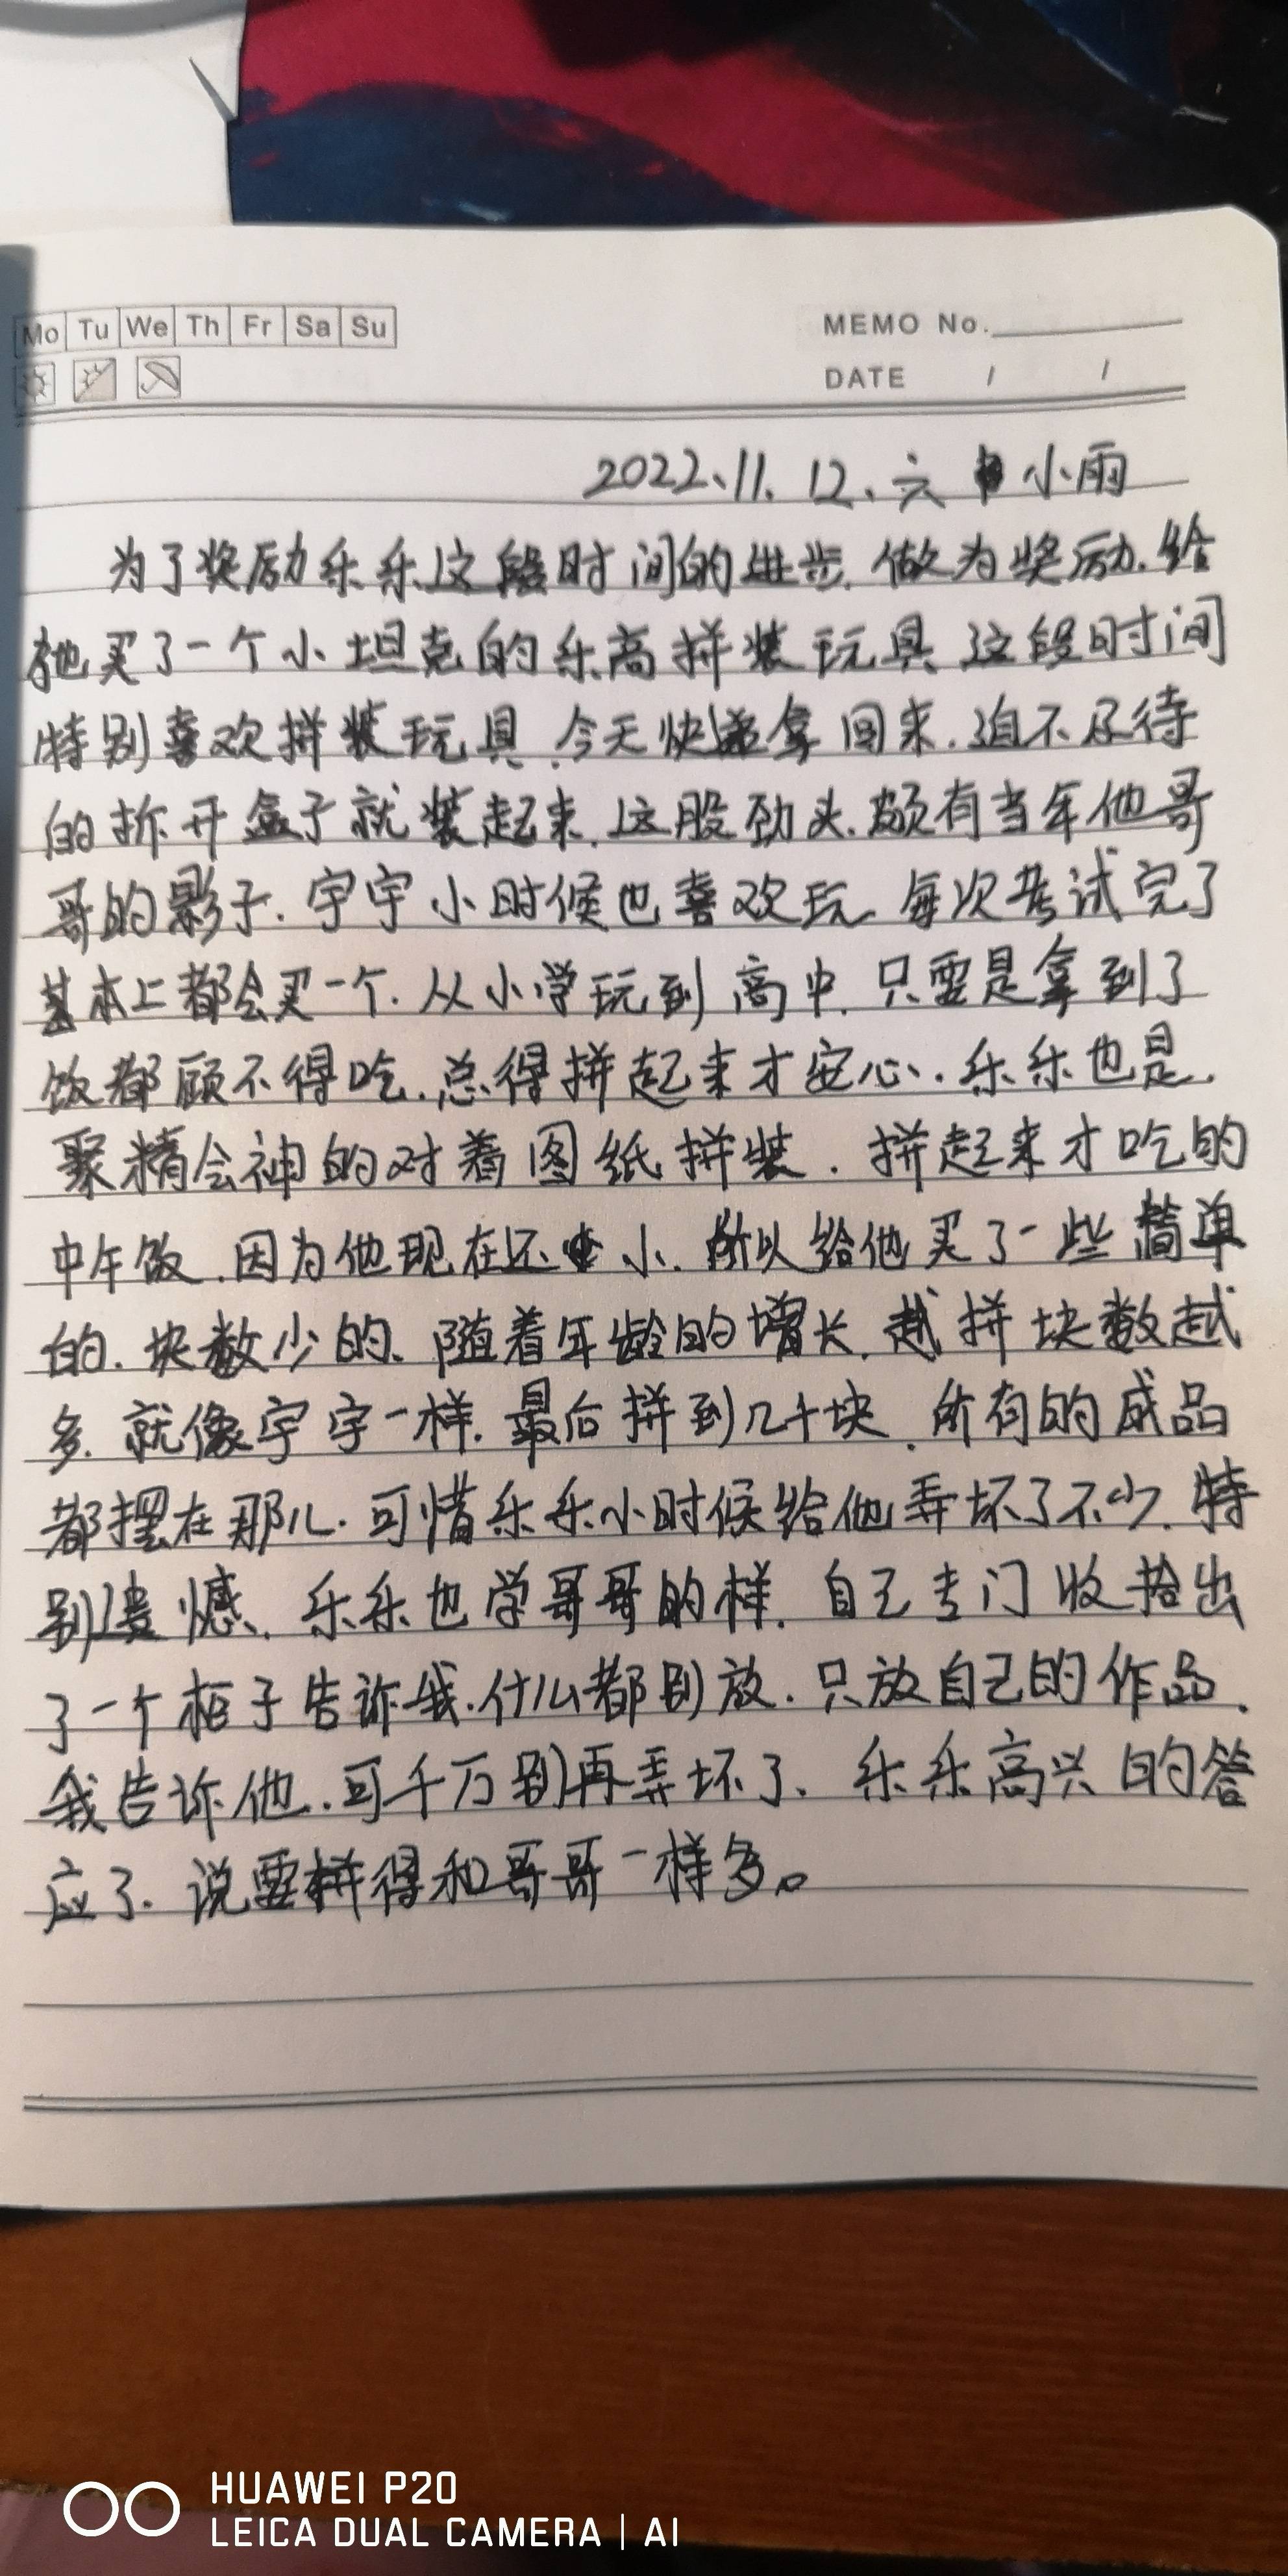 Mo Tu We Th Fr Sa Su
MEMO No.
DATE / /
2022、11、12、六 小雨
为了奖励乐乐这段时间的进步.做为奖励.给
他买了一个小坦克的乐高拼装玩具.这段时间
特别喜欢拼装玩具.今天快递拿回来.迫不及待
的拆开盒子就装起来.这股劲头.颇有当年他哥
哥的影子.宇宇小时候也喜欢玩.每次考试完了
基本上都会买一个.从小学玩到高中.只要是拿到了
饭都顾不得吃.总得拼起来才安心.乐乐也是.
聚精会神的对着图纸拼装.拼起来才吃的
中午饭.因为他现在还小.所以给他买了一些简单
的.块数少的、随着年龄的增长.越拼块数越
多.就像宇宇一样.最后拼到几千块.所有的成品
都摆在那儿.可惜乐乐小时候给他弄坏了不少.特
别遗憾、乐乐也学哥哥的样.自己专门收拾出
了一个柜子告诉我.什么都别放.只放自己的作品.
我告诉他.可千万别再弄坏了、乐乐高兴的答
应了.说要拼得和哥哥一样多。
HUAWEI P20
LEICA DUAL CAMERA | AI